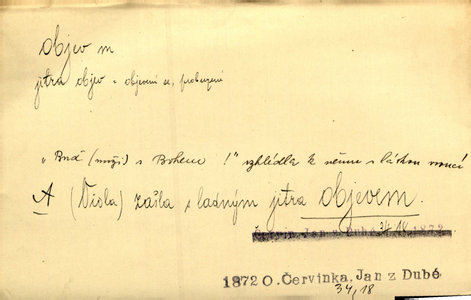 objev m
jitra objev = objevení se, probuzení
„Buď (muži) s Bohem!" vzhlédla k němu s láskou vroucí
A (Viola) zašla s ladným jitra objevem.
Červinka, Jan z Dubé 34, 18 1872
1872 O. Červinka, Jan z Dubé
34, 18